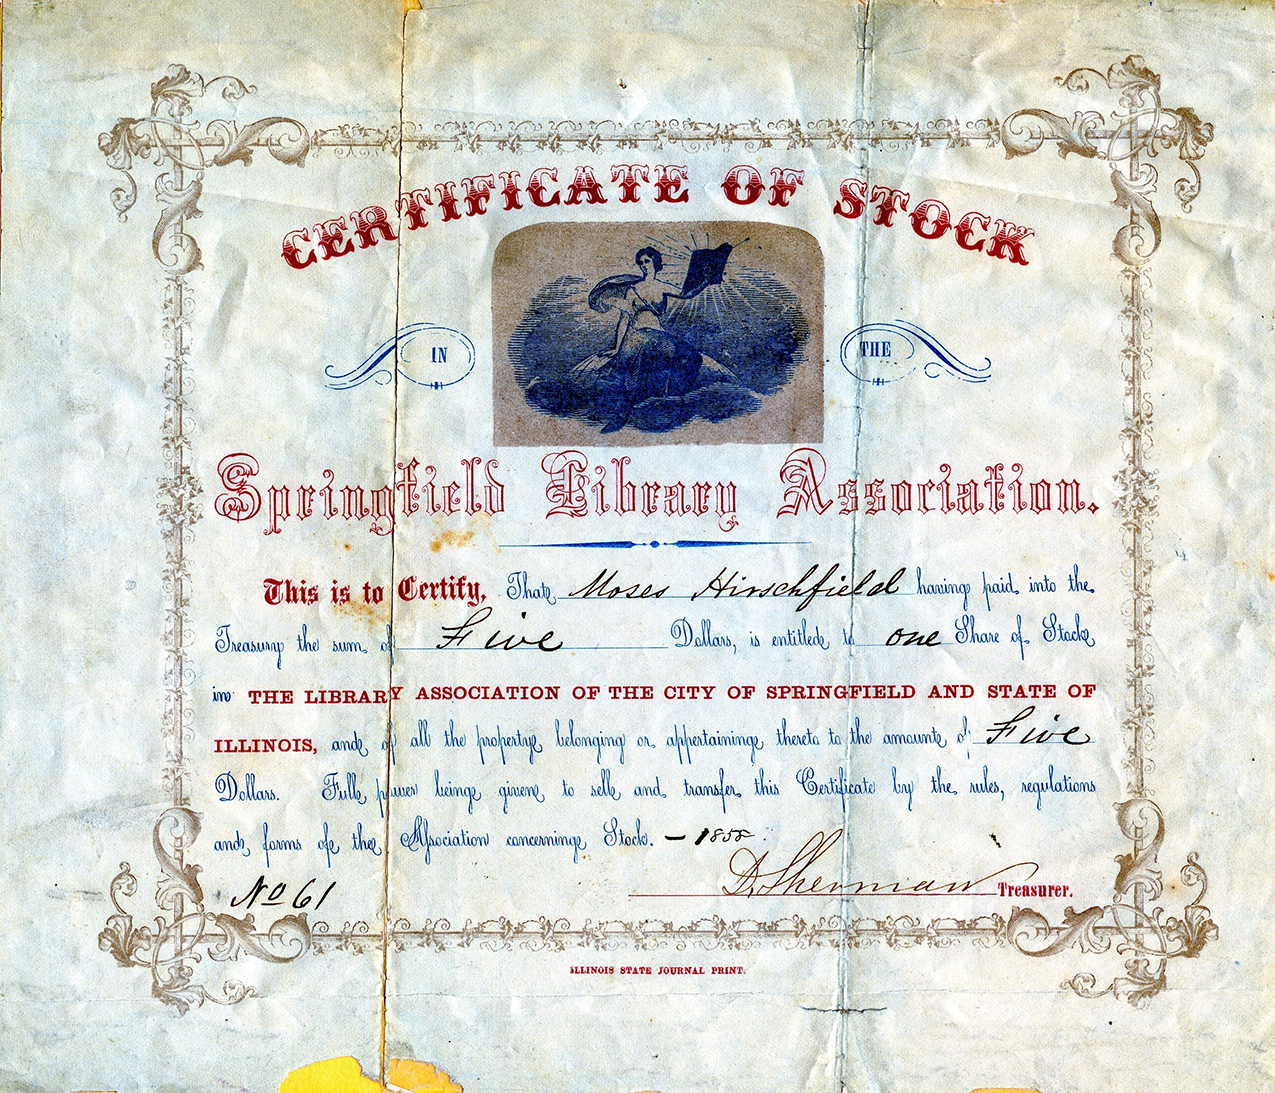 CERTIFICATE OF STOCK
IN THE
Springfield Library Association.
This is to Certify, That Moses Hirschfield having paid into the
Treasury the sum of Five Dollars, is entitled to one Share of Stock
in THE LIBRARY ASSOCIATION OF THE CITY OF SPRINGFIELD AND STATE OF
ILLINOIS, and of all the property belonging or appertaining thereto to the amount of Five
Dollars. Full power being given to sell and transfer this Certificate by the rules, regulations
and forms of the Association concerning Stock. – 1858
No 61 D. Sherman Treasurer.
ILLINOIS STATE JOURNAL PRINT.